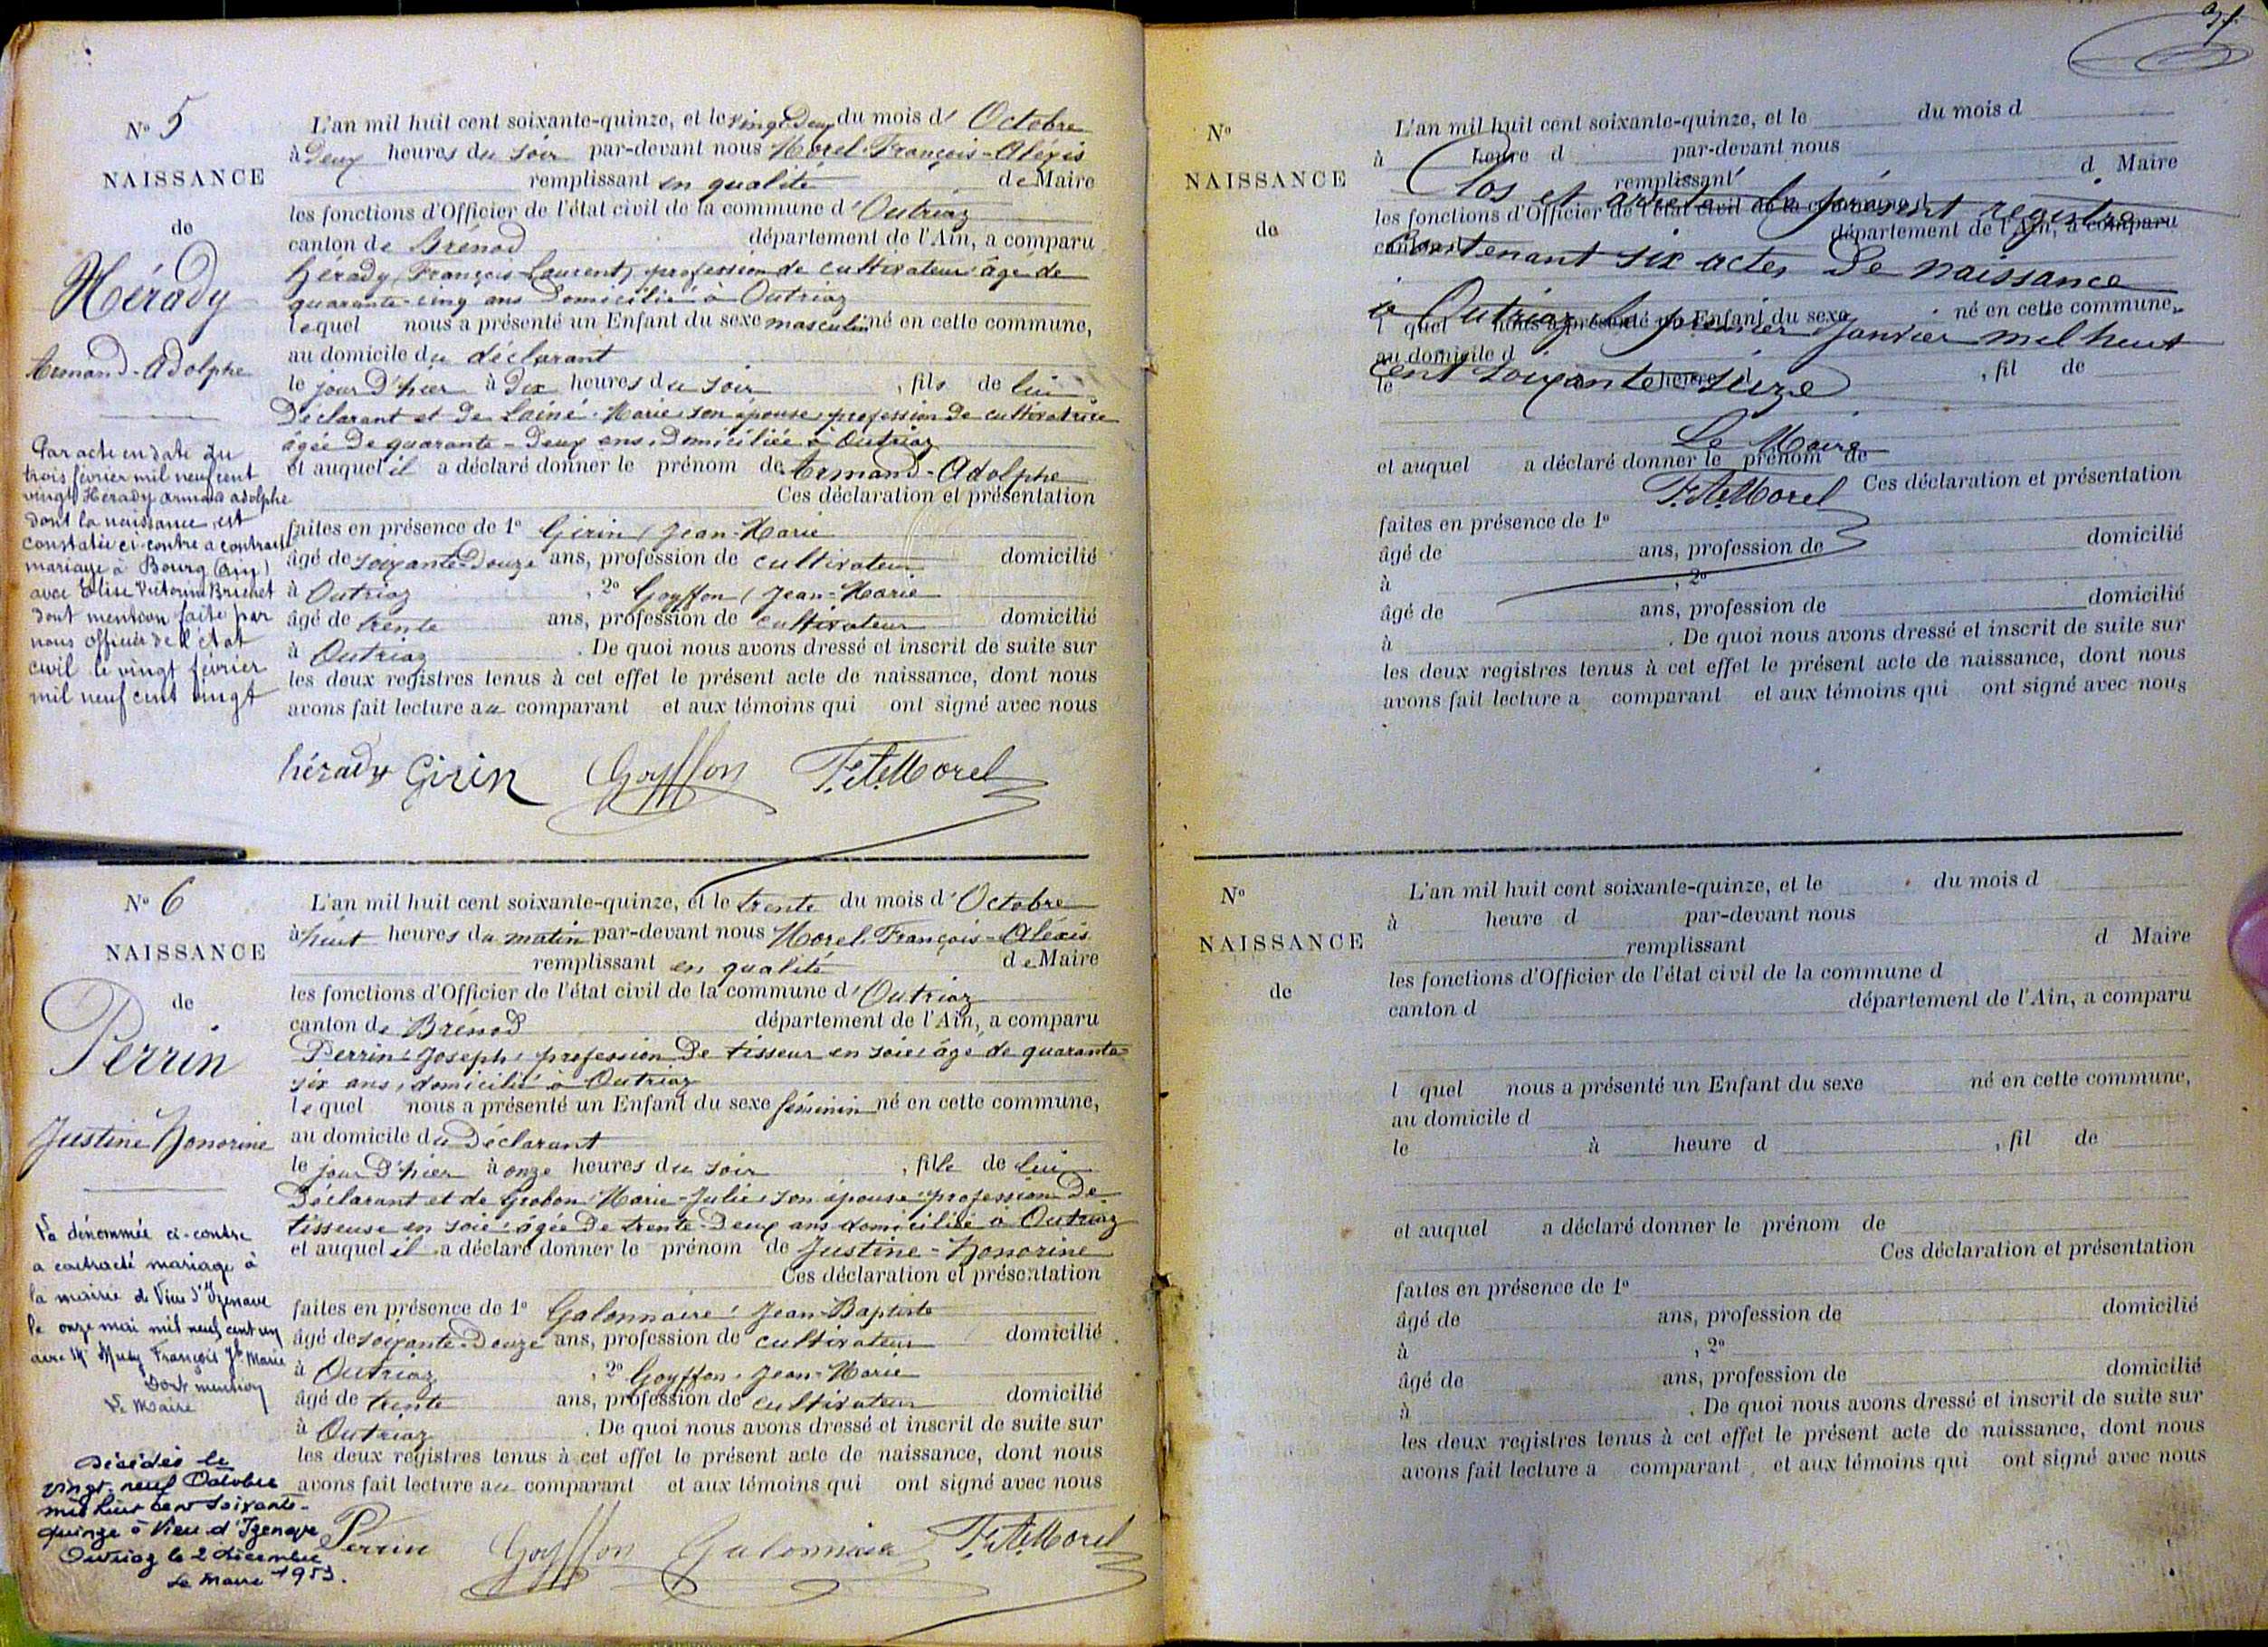 N° 5
NAISSANCE
de
Hérady
Armand-Adolphe
Par acte en date du
trois février mil neuf cent
vingt Hérady Armand Adolphe
dont la naissance est
constatée ci-contre a contracté
mariage à Bourg (Ain)
avec Elise Victorine Brichet
dont mention faite par
nous officier de l'état
civil le vingt février
mil neuf cent vingt
L'an mil huit cent soixante-quinze, et le vingt Deux du mois d' Octobre
à Deux heures du soir par-devant nous Morel François-Aléxis
remplissant en qualité de Maire
les fonctions d'Officier de l'état civil de la commune d' Outriaz
canton de Brénod département de l'Ain, a comparu
hérady, François-Laurent, profession de cultivateur âgé de
quarante-cinq ans Domicilié à Outriaz
lequel nous a présenté un Enfant du sexe masculin né en cette commune,
au domicile du déclarant
le jour D'hier à Dix heures du soir , fils de lui
Déclarant et De Lainé Marie son épouse profession De cultivatrice
âgée De quarante-Deux ans, Domiciliée à Outriaz
et auquel il a déclaré donner le prénom de Armand-Adolphe
Ces déclaration et présentation
faites en présence de 1° Girin, Jean-Marie
âgé de soixante-Douze ans, profession de cultivateur domicilié
à Outriaz , 2° Goyffon, Jean-Marie
âgé de trente ans, profession de cultivateur domicilié
à Outriaz . De quoi nous avons dressé et inscrit de suite sur
les deux registres tenus à cet effet le présent acte de naissance, dont nous
avons fait lecture au comparant et aux témoins qui ont signé avec nous
hérady Girin Goyffon F. A. Morel
N° 6
NAISSANCE
de
Perrin
Justine Honorine
La dénommée ci-contre
a contracté mariage à
la mairie de Vieu d'Izenave
le onze mai mil neuf cent un
avec Mr François Jh Marie
Dont mention
Le Maire
Décédée le
vingt-neuf Octobre
mil huit cent soixante-
quinze à Vieu d'Izenave
Outriaz le 2 décembre
Le Maire 1953.
L'an mil huit cent soixante-quinze, et le trente du mois d' Octobre
à huit heures du matin par-devant nous Morel François-Aléxis
remplissant en qualité de Maire
les fonctions d'Officier de l'état civil de la commune d' Outriaz
canton de Brénod département de l'Ain, a comparu
Perrin, Joseph, profession De tisseur en soie, âgé de quarante-
six ans, domicilié à Outriaz
lequel nous a présenté un Enfant du sexe féminin né en cette commune,
au domicile du Déclarant
le jour D'hier à onze heures du soir , fille de lui
Déclarant et de Grobon Marie-Julie, son épouse, profession De
tisseuse en soie, âgée De trente-Deux ans domiciliée à Outriaz
et auquel il a déclaré donner le prénom de Justine-Honorine
Ces déclaration et présentation
faites en présence de 1° Galonnaire, Jean-Baptiste
âgé de soixante-Douze ans, profession de cultivateur domicilié
à Outriaz , 2° Goyffon, Jean-Marie
âgé de trente ans, profession de cultivateur domicilié
à Outriaz . De quoi nous avons dressé et inscrit de suite sur
les deux registres tenus à cet effet le présent acte de naissance, dont nous
avons fait lecture au comparant et aux témoins qui ont signé avec nous
Perrin Goyffon Galonnaire F. A. Morel
N°
NAISSANCE
de
L'an mil huit cent soixante-quinze, et le du mois d
à heure d par-devant nous
remplissant d Maire
Clos et arrêté le présent registre
les fonctions d'Officier de l'état civil de la commune d
canton d département de l'Ain, a comparu
contenant six actes De naissance
à Outriaz le premier Janvier mil huit
l quel nous a présenté un Enfant du sexe né en cette commune,
au domicile d
cent soixante-seize
le heure d , fil de
Le Maire
et auquel a déclaré donner le prénom de
F. A. Morel
Ces déclaration et présentation
faites en présence de 1°
âgé de ans, profession de domicilié
à , 2°
âgé de ans, profession de domicilié
à . De quoi nous avons dressé et inscrit de suite sur
les deux registres tenus à cet effet le présent acte de naissance, dont nous
avons fait lecture a comparant et aux témoins qui ont signé avec nous
N°
NAISSANCE
de
L'an mil huit cent soixante-quinze, et le du mois d
à heure d par-devant nous
remplissant d Maire
les fonctions d'Officier de l'état civil de la commune d
canton d département de l'Ain, a comparu
l quel nous a présenté un Enfant du sexe né en cette commune,
au domicile d
le à heure d , fil de
et auquel a déclaré donner le prénom de
Ces déclaration et présentation
faites en présence de 1°
âgé de ans, profession de domicilié
à , 2°
âgé de ans, profession de domicilié
à . De quoi nous avons dressé et inscrit de suite sur
les deux registres tenus à cet effet le présent acte de naissance, dont nous
avons fait lecture a comparant et aux témoins qui ont signé avec nous